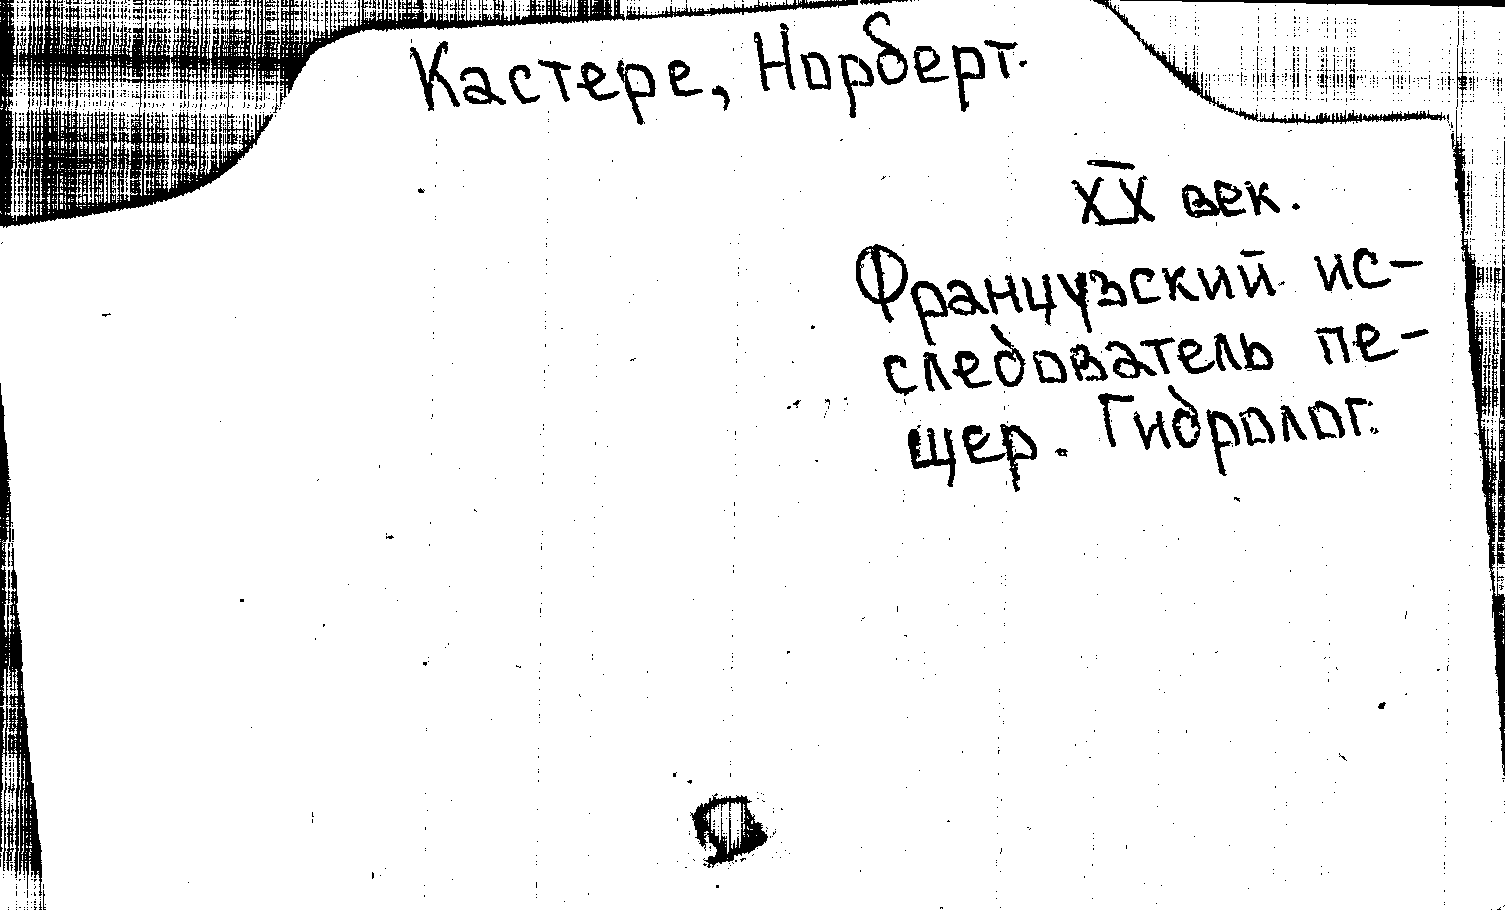 Кастере, Норберт.
XX век.
Французский ис-
следователь пе-
щер. Гидролог.